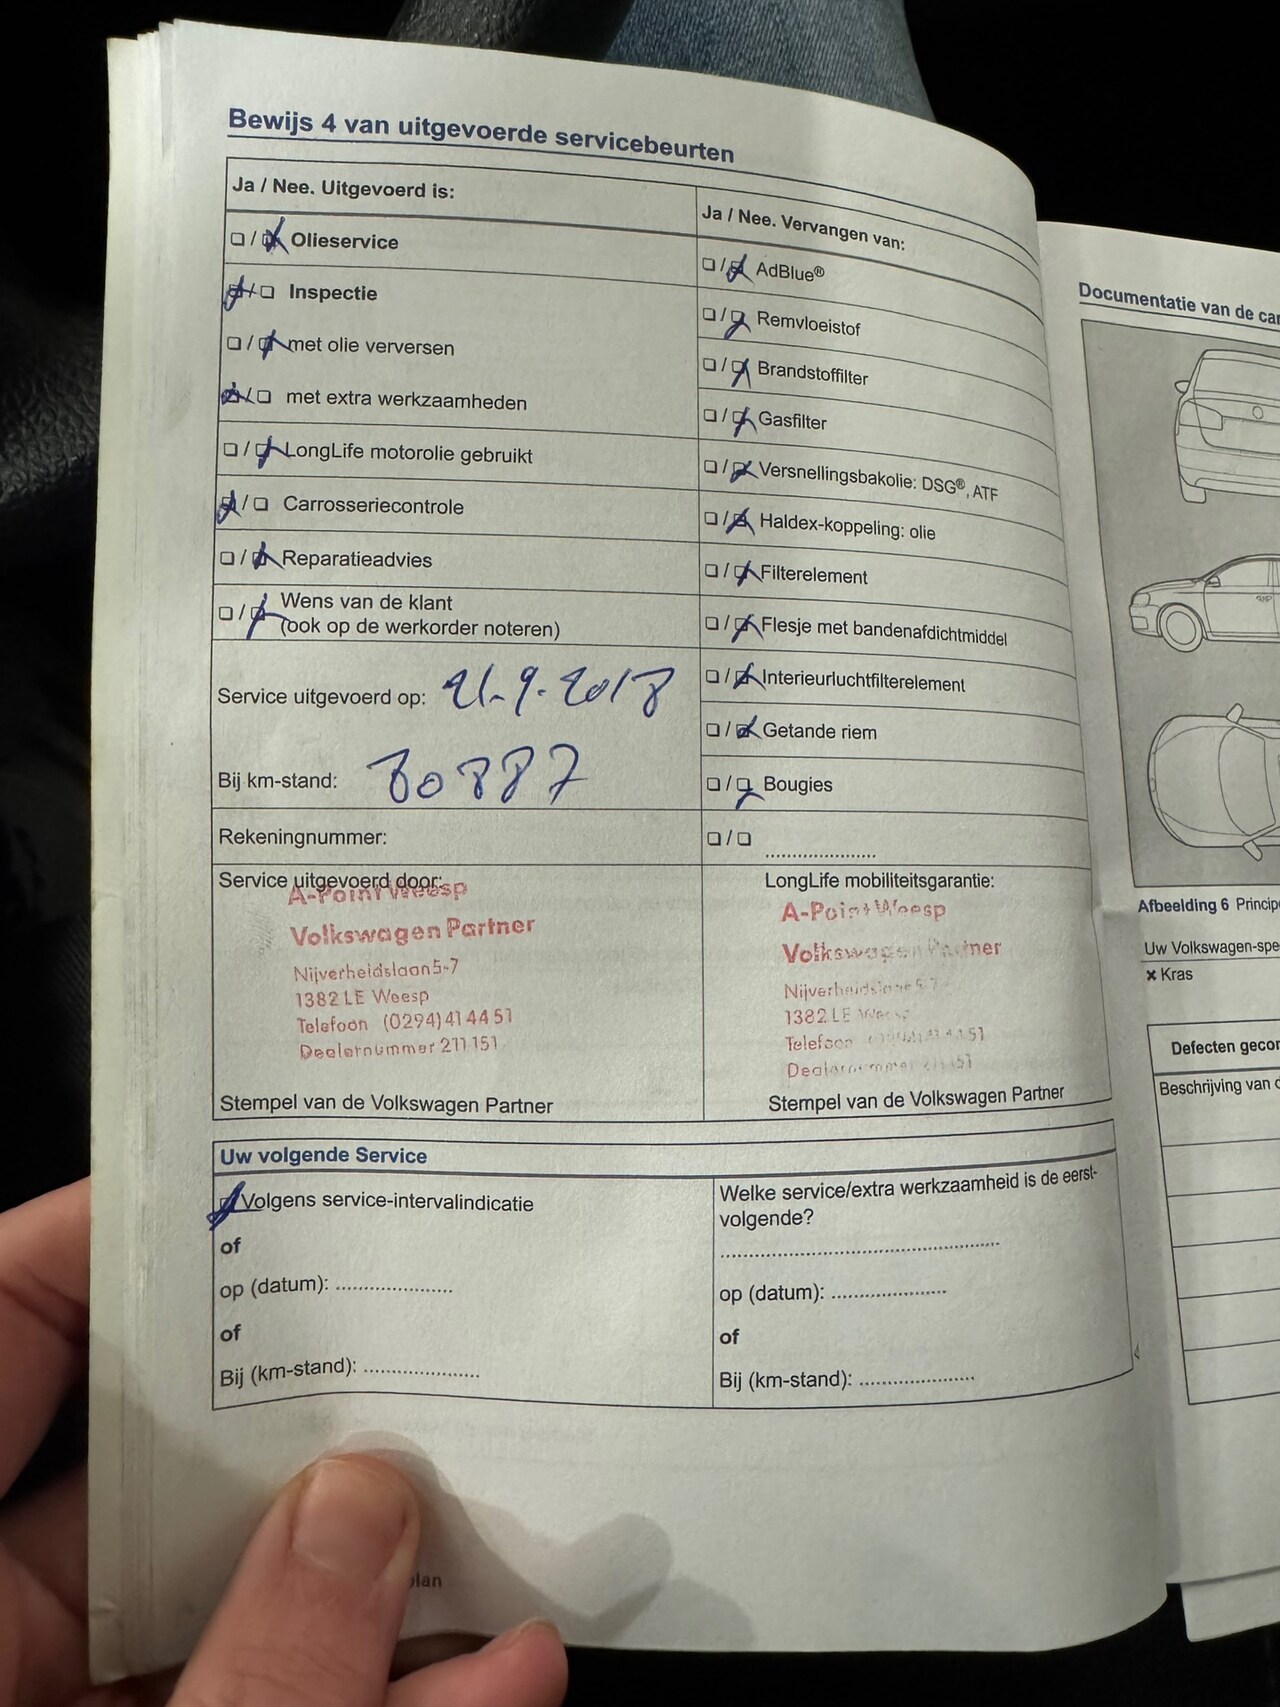 Bewijs 4 van uitgevoerde servicebeurten
Ja / Nee. Uitgevoerd is:
Olieservice
Inspectie
met olie verversen
met extra werkzaamheden
LongLife motorolie gebruikt
Carrosseriecontrole
Reparatieadvies
Wens van de klant
(ook op de werkorder noteren)
Service uitgevoerd op: 21-9-2018
Bij km-stand: 80887
Rekeningnummer:
Service uitgevoerd door:
A-Point Weesp
Volkswagen Partner
Nijverheidslaan 5-7
1382 LE Weesp
Telefoon (0294) 41 44 51
Dealernummer 211 151
Stempel van de Volkswagen Partner
Ja / Nee. Vervangen van:
AdBlue®
Remvloeistof
Brandstoffilter
Gasfilter
Versnellingsbakolie: DSG®, ATF
Haldex-koppeling: olie
Filterelement
Flesje met bandenafdichtmiddel
Interieurluchtfilterelement
Getande riem
Bougies
....................
LongLife mobiliteitsgarantie:
A-Point Weesp
Volkswagen Partner
Nijverheidslaan 5-7
1382 LE Weesp
Telefoon (0294) 41 44 51
Dealernummer 211 151
Stempel van de Volkswagen Partner
Uw volgende Service
Volgens service-intervalindicatie
of
op (datum): ....................
of
Bij (km-stand): ....................
Welke service/extra werkzaamheid is de eerst-
volgende?
................................................
op (datum): ....................
of
Bij (km-stand): ....................
plan
Documentatie van de car
Afbeelding 6 Principe
Uw Volkswagen-spe
× Kras
Defecten gecor
Beschrijving van d